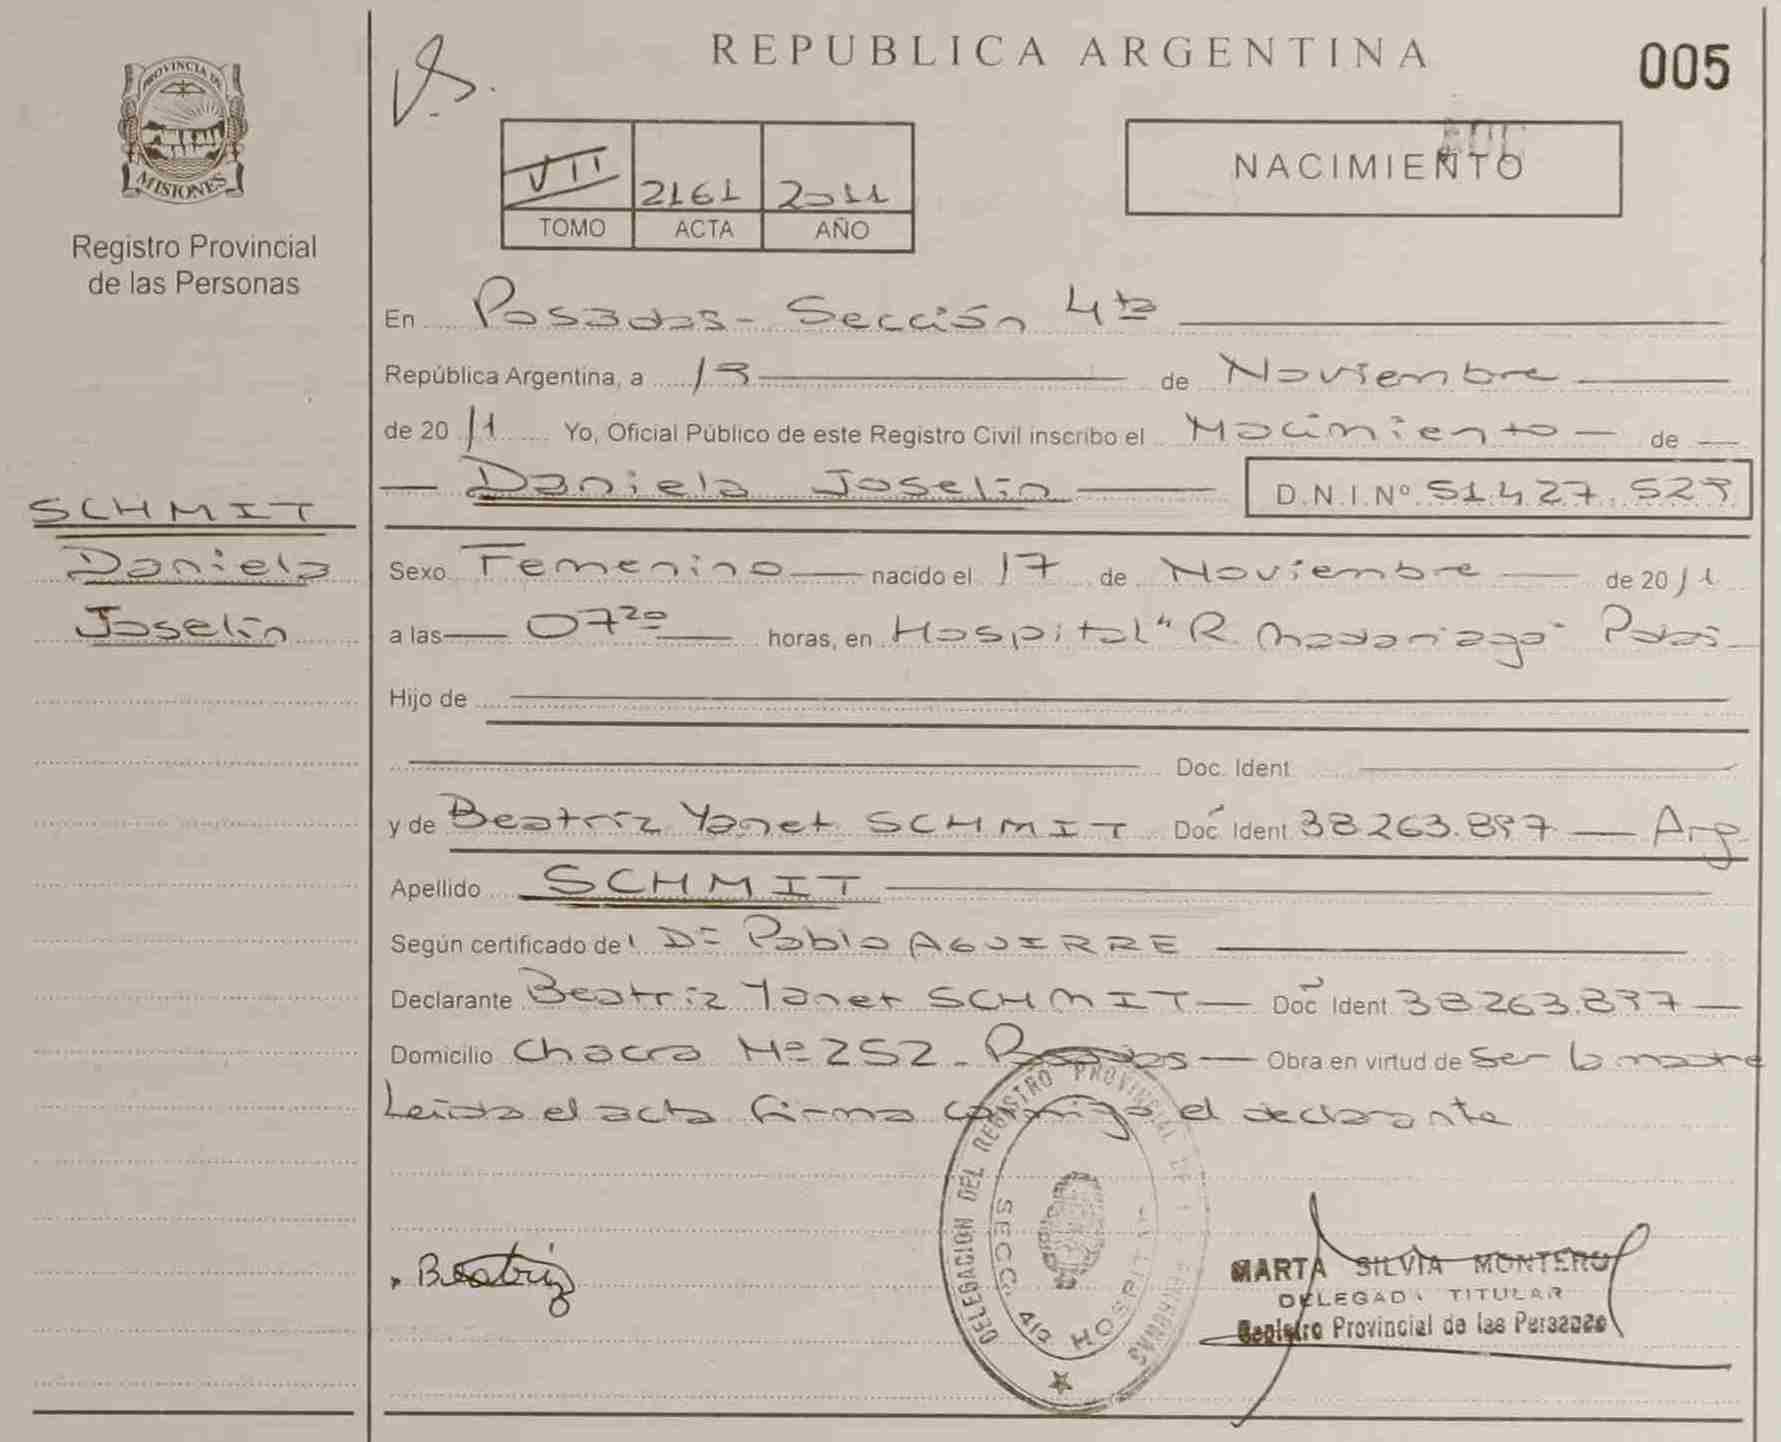 REPUBLICA ARGENTINA
005
PROVINCIA DE
MISIONES
Registro Provincial
de las Personas
VII 2161 2011
TOMO ACTA AÑO
NACIMIENTO
En Posadas - Sección 4ta
República Argentina, a 19 de Noviembre
de 2011 Yo, Oficial Público de este Registro Civil inscribo el Nacimiento de
Daniela Joselin D.N.I.Nº 51.427.529
SCHMIT
Daniela
Joselin
Sexo Femenino nacido el 17 de Noviembre de 2011
a las 07 20 horas, en Hospital "R. Madariaga"
Hijo de
Doc. Ident
y de Beatriz Yanet SCHMIT Doc Ident 38.263.897 Arg
Apellido SCHMIT
Según certificado del Dr Pablo AGUIRRE
Declarante Beatriz Yanet SCHMIT Doc Ident 38263.897
Domicilio Chacra Nº 252 - Posadas Obra en virtud de Ser la madre
Leida el acta firma conmigo el declarante
DELEGACION DEL REGISTRO PROVINCIAL DE LAS PERSONAS
SECC. 4ta HOSPITAL
Beatriz
MARTA SILVIA MONTERO
DELEGADA TITULAR
Registro Provincial de las Personas